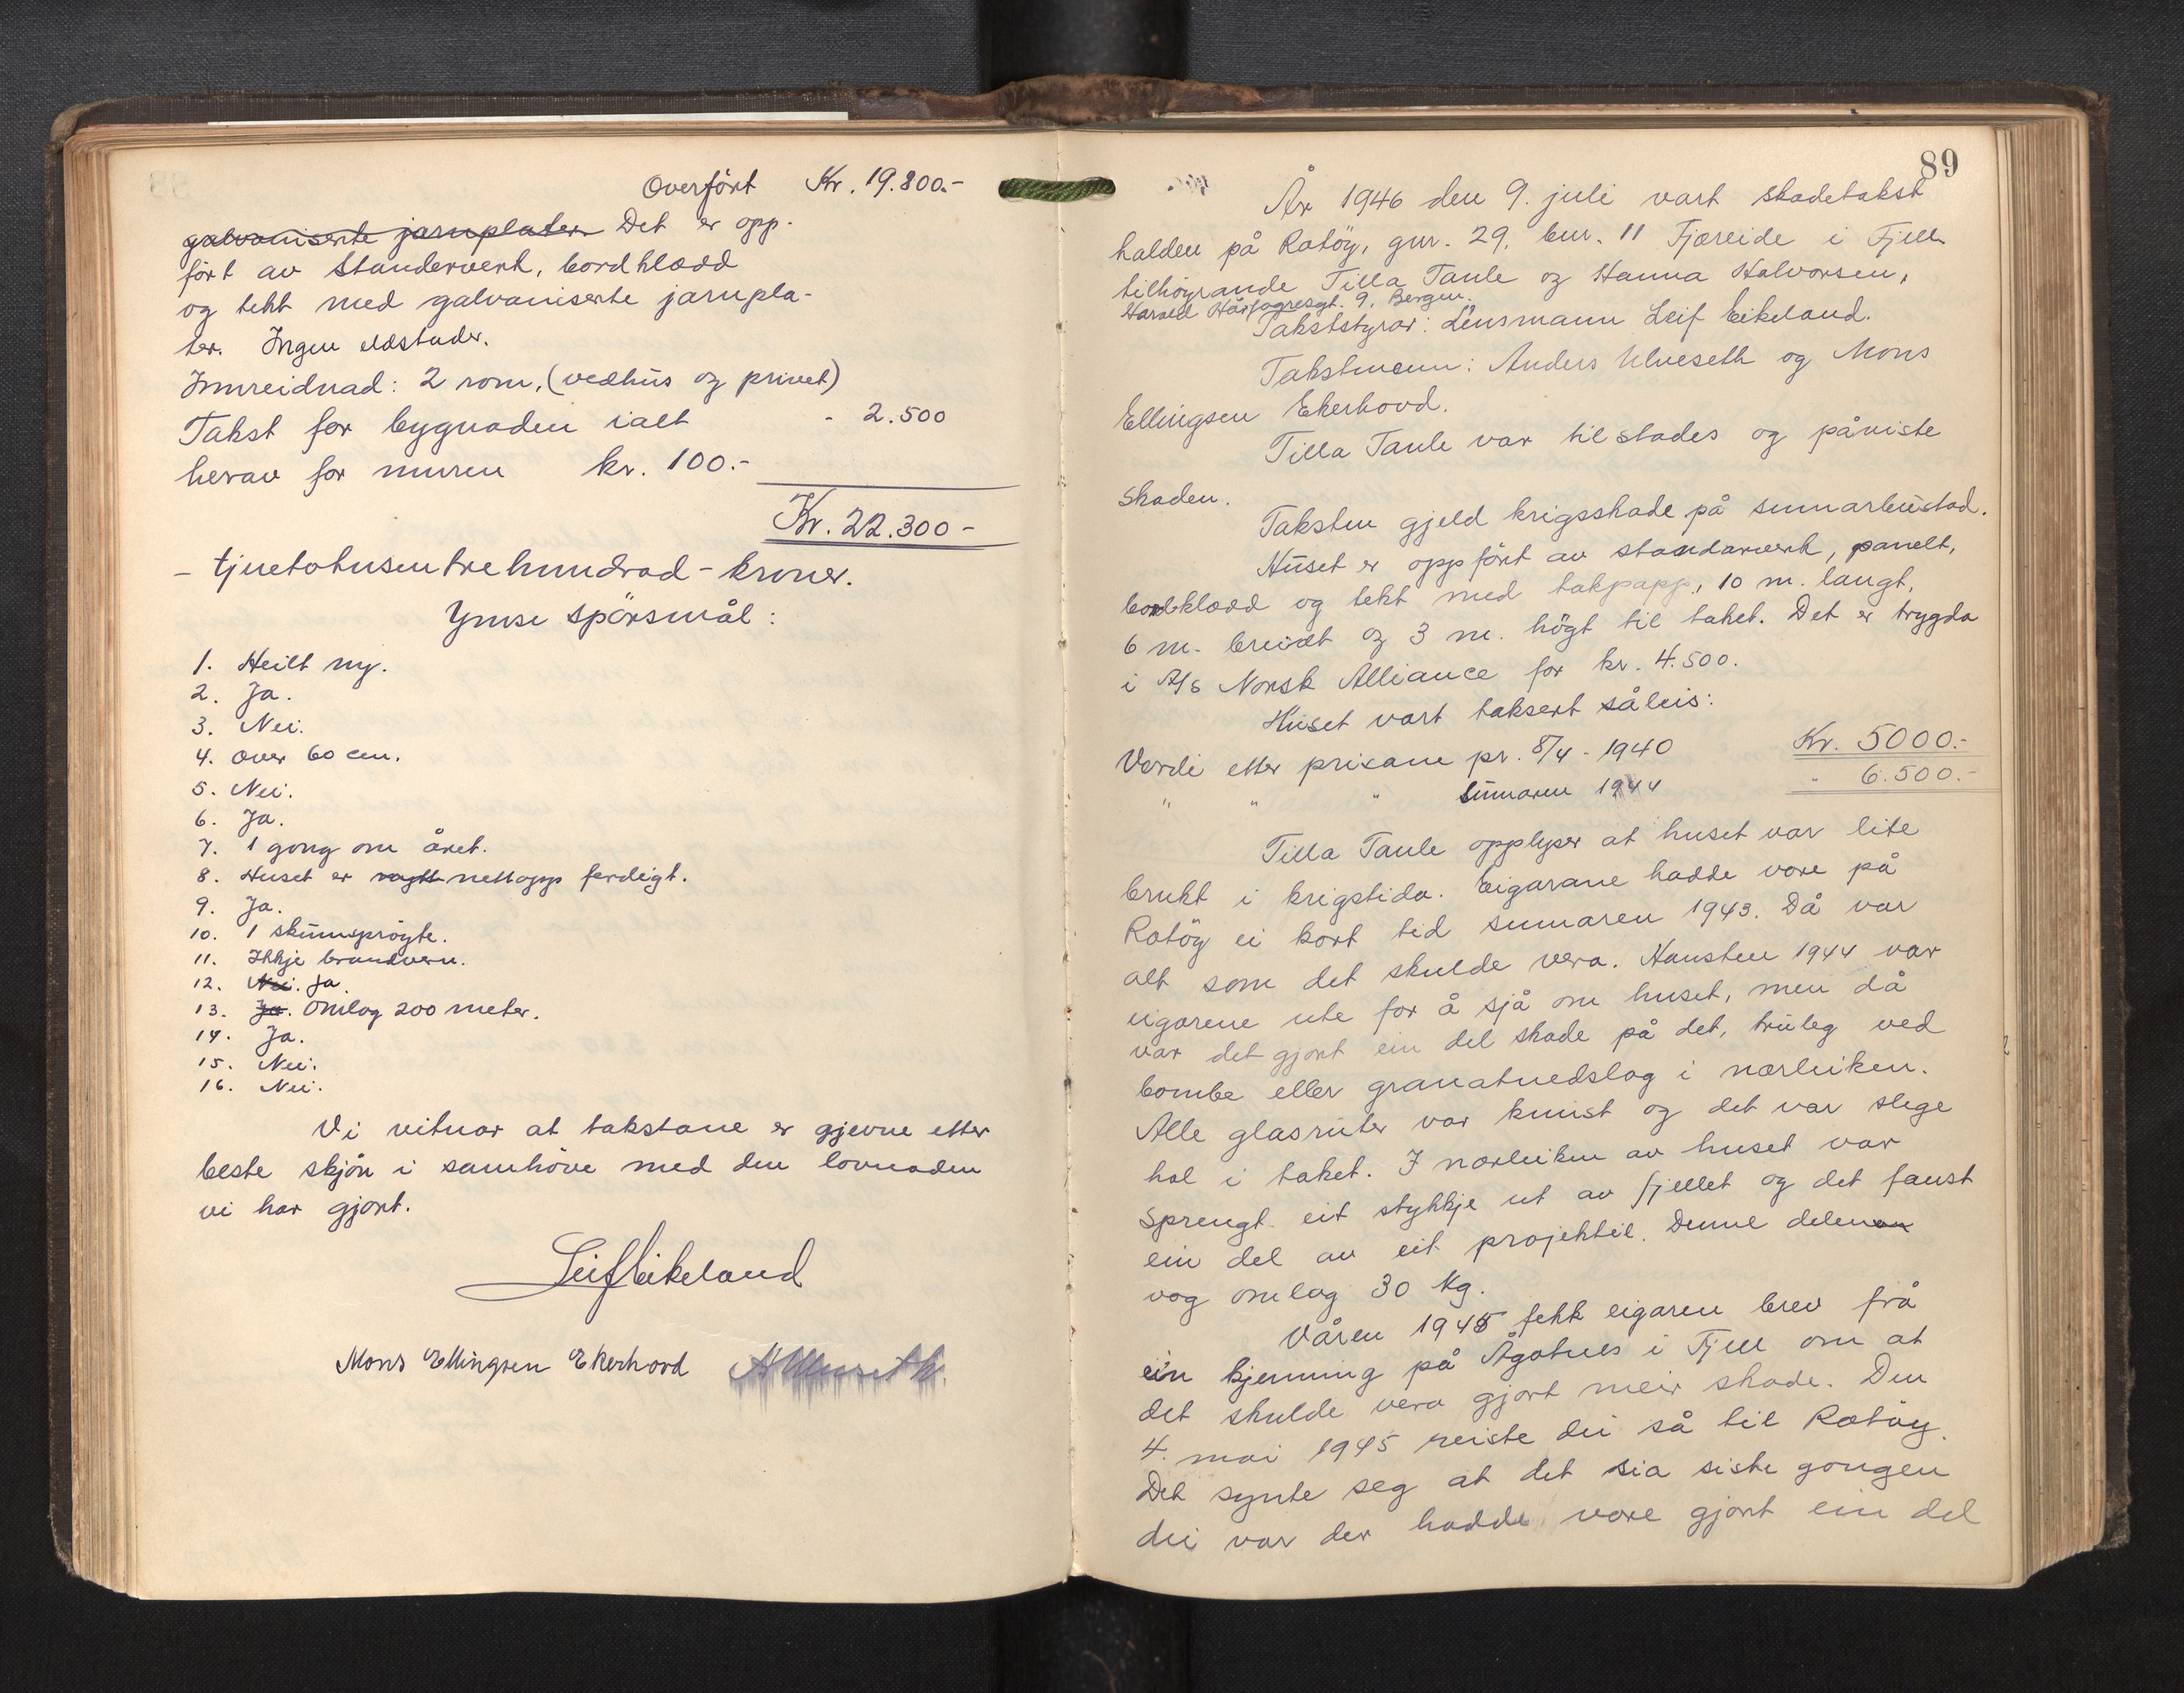 Overfört Kr. 19.800.-
galvaniserte jarnplater. Det er opp-
fört av Standerverk, bordklædd
og tekt med galvaniserte jarnpla-
ter. Ingen eldstader.
Innreidnad: 2 rom, (vedhus og privet)
Takst for bygnaden ialt - 2.500
herav for muren kr. 100.-
Kr. 22.300-
- tjuetotusentrehundrad - kroner.
Ymse spörsmål:
1. Heilt ny.
2. Ja.
3. Nei.
4. Over 60 cm.
5. Nei.
6. Ja.
7. 1 gong om året.
8. Huset er nettopp ferdigt.
9. Ja.
10. 1 skumspröyte.
11. Ikkje brandvern.
12. Nei. Ja.
13. Ja. Omlag 200 meter.
14. Ja.
15. Nei.
16. Nei.
Vi vitnar at takstane er gjevne etter
beste skjön i samhöve med den lovnaden
vi har gjort.
Leif Eikeland
Mons Ellingsen Ekerhovd A Ulveseth
89
År 1946 den 9. juli vart skadetakst
halden på Rotöy, gnr. 29, bnr. 11 Fjæreide i Fjell
tilhöyrande Tilla Taule og Hanna Halvorsen,
Harald Hårfagresgt. 9, Bergen.
Takststyrar: Lensmann Leif Eikeland.
Takstmenn: Anders Ulveseth og Mons
Ellingsen Ekerhovd.
Tilla Taule var tilstades og påviste
skaden.
Taksten gjeld krigsskade på sumarbustad.
Huset er oppfört av standarverk, panelt,
bordklædd og tekt med takpapp, 10 m. langt,
6 m. breidt og 3 m. högt til taket. Det er trygda
i A/S Norsk Alliance for kr. 4.500.
Huset vart taksert såleis:
Verdi etter prisane pr. 8/4 - 1940 Kr. 5000.-
" " " sumaren 1944 " 6.500.-
Tilla Taule opplyser at huset var lite
brukt i krigstida. Eigarane hadde vore på
Rotöy ei kort tid sumaren 1943. Då var
alt som det skulde vera. Hausten 1944 var
eigarene ute for å sjå om huset, men då
var det gjort ein del skade på det, truleg ved
bombe eller granatnedslag i nærleiken.
Alle glasruter var knust og det var slege
hol i taket. I nærleiken av huset var
sprengt eit stykkje ut av fjellet og det fanst
ein del av eit projektil. Denne delen
vog omlag 30 kg.
Våren 1945 fekk eigaren brev frå
ein kjenning på Ågotnes i Fjell om at
det skulde vera gjort meir skade. Den
4. mai 1945 reiste dei så til Rotöy.
Det synte seg at det sia siste gongen
dei var der hadde vore gjort ein del